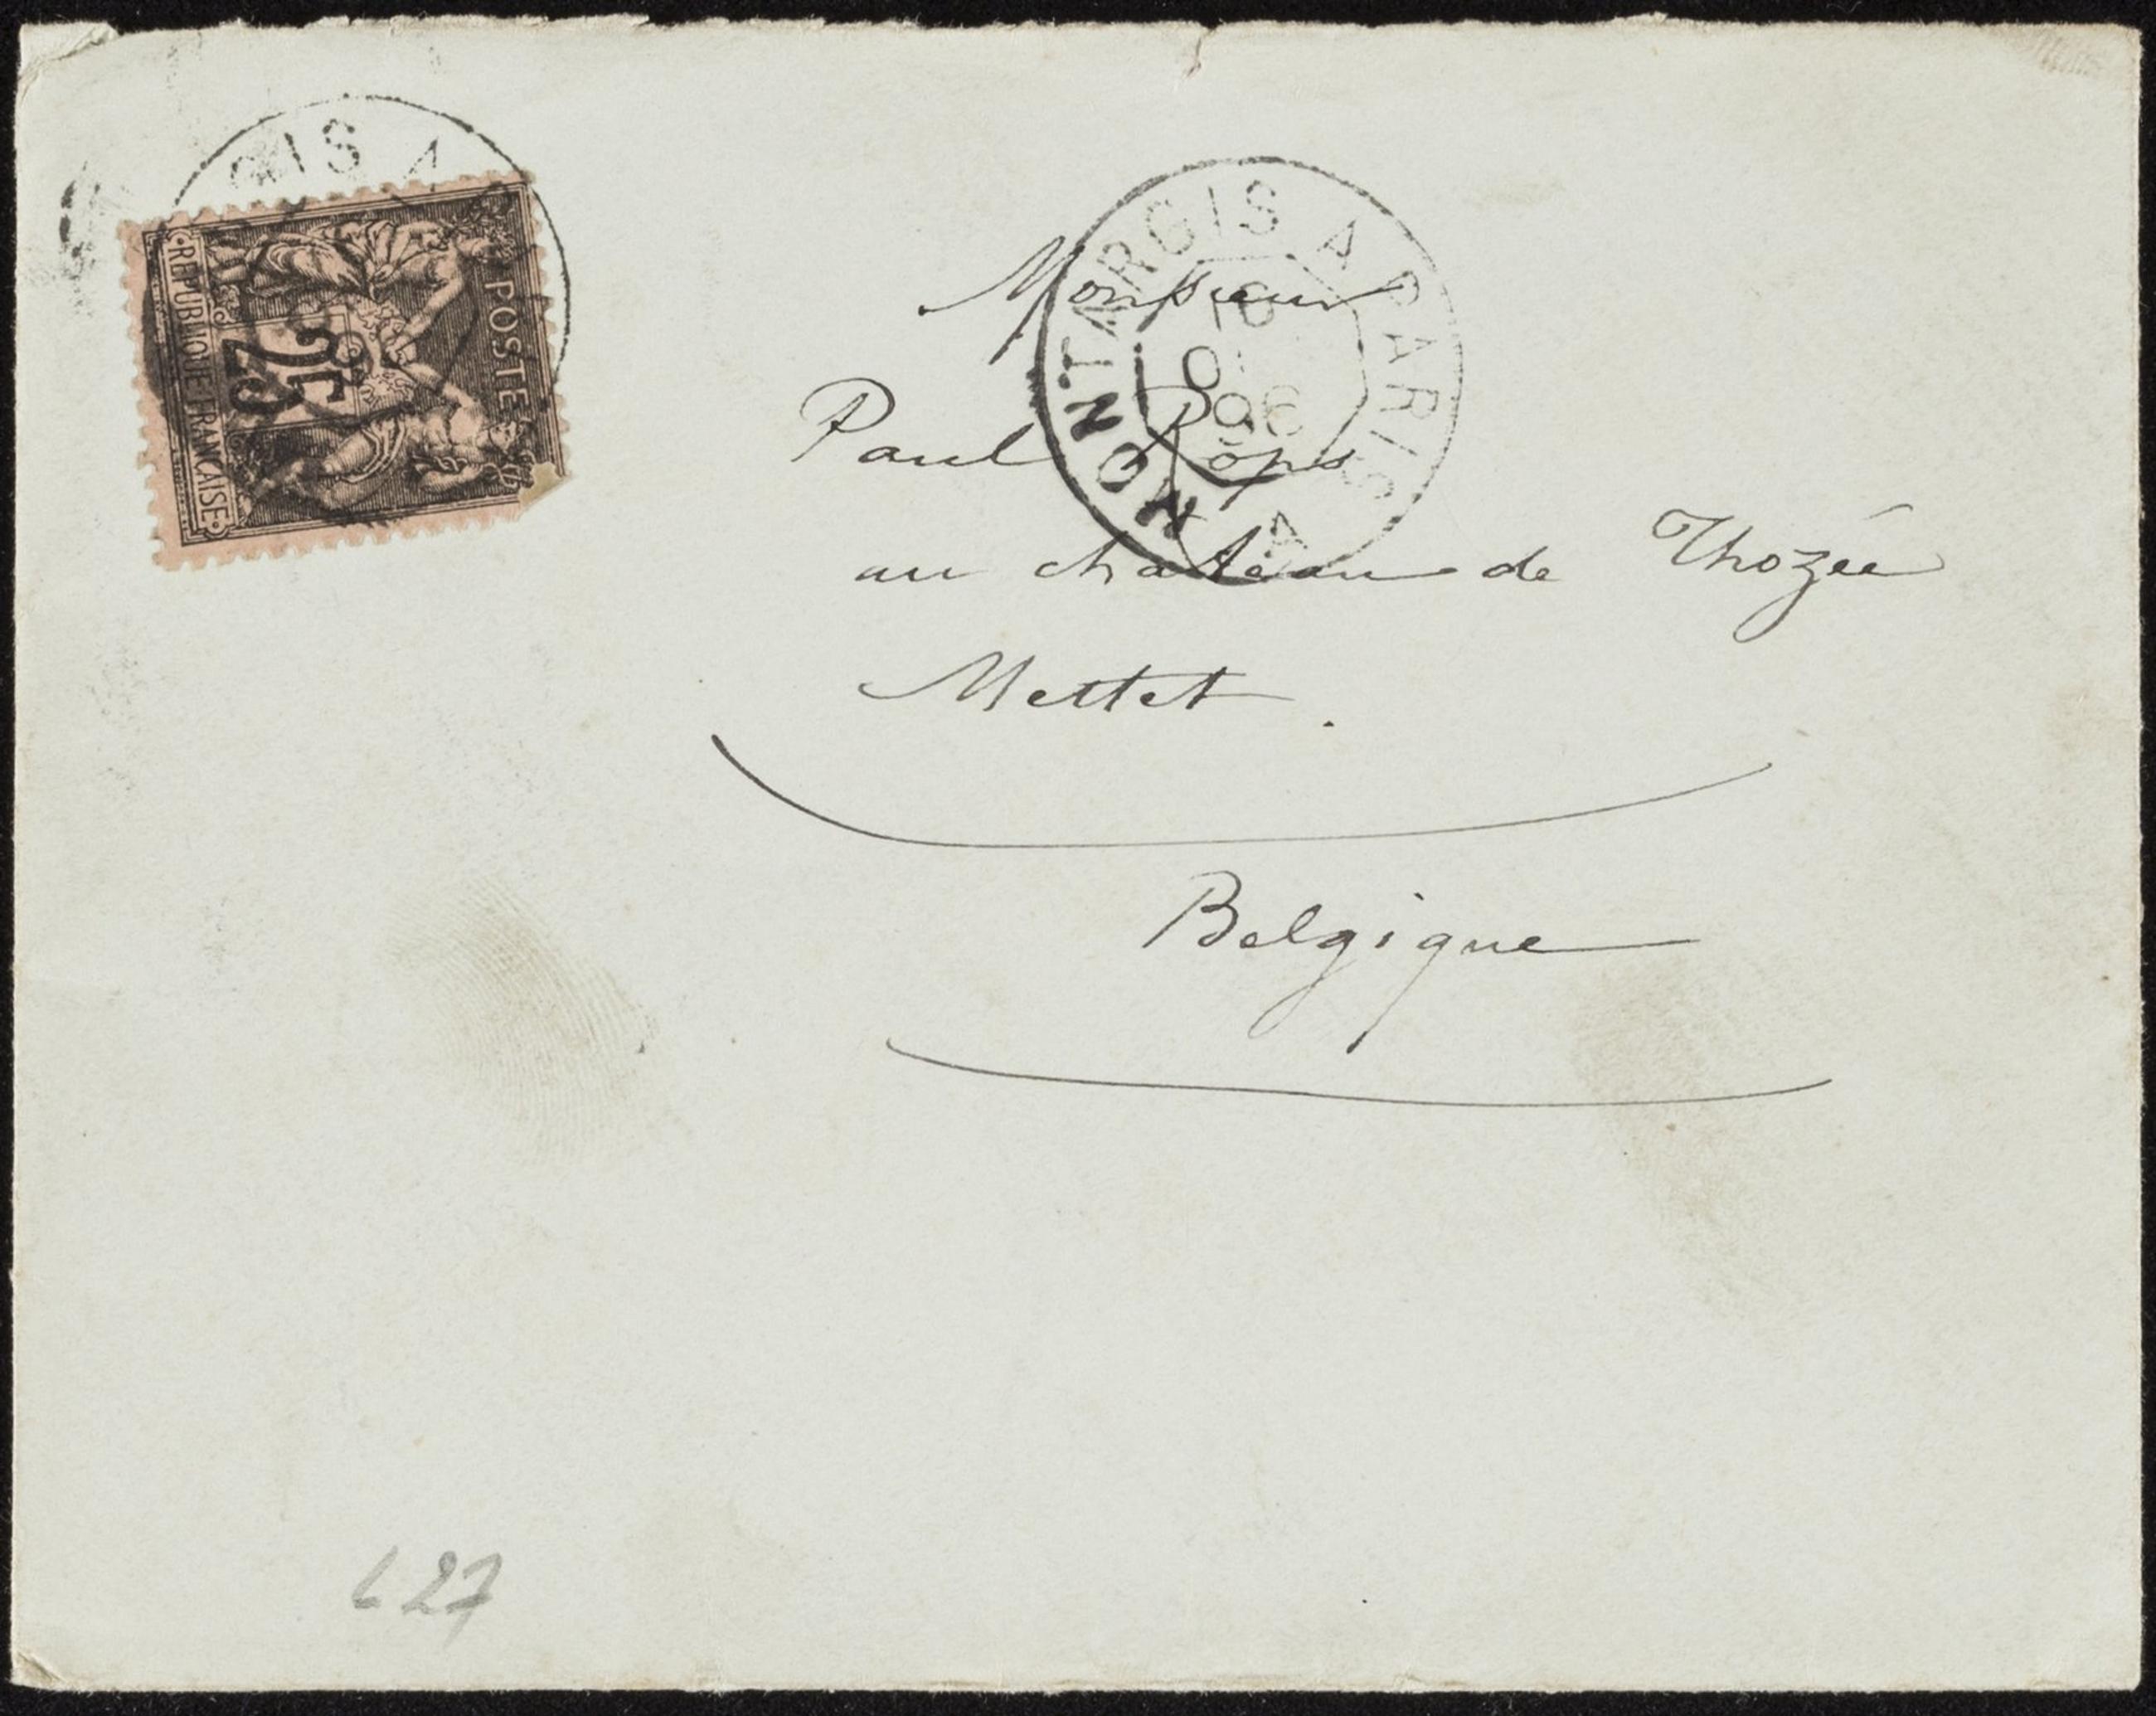 POSTES
25c
RÉPUBLIQUE FRANÇAISE
GIS A
MONTARGIS A PARIS
10
96
A
Monsieur
Paul Rops
au château de Thozée
Mettet.
Belgique
L 27